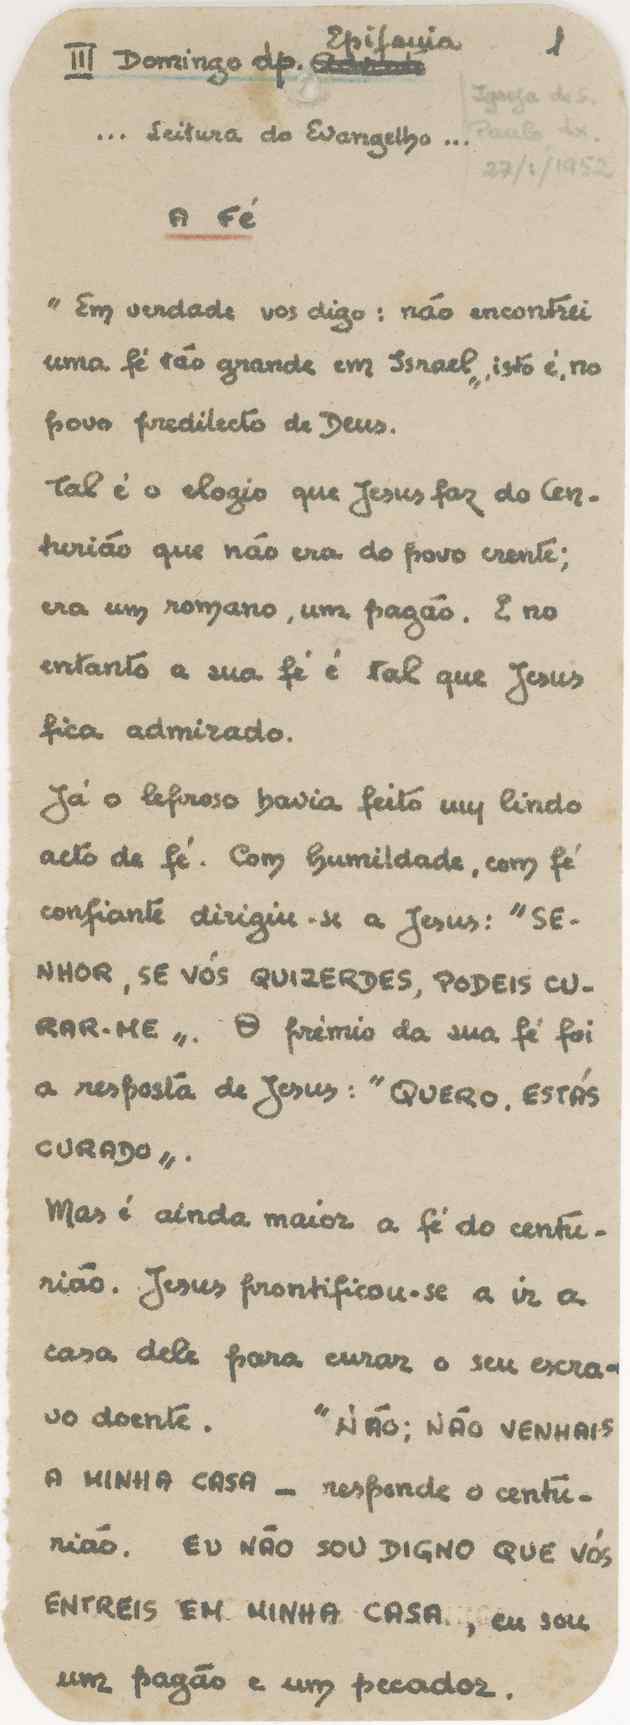 Epifania 1
III Domingo dp.
Igreja de S.
... Leitura do Evangelho ... Paulo, Lx.
27/1/1952
A Fé
" Em verdade vos digo: não encontrei
uma fé tão grande em Israel„, isto é, no
povo predilecto de Deus.
Tal é o elogio que Jesus faz do Cen-
turião que não era do povo crente;
era um romano, um pagão. E no
entanto a sua fé é tal que Jesus
fica admirado.
Já o leproso havia feito um lindo
acto de fé. Com humildade, com fé
confiante dirigiu-se a Jesus: "SE-
NHOR, SE VÓS QUIZERDES, PODEIS CU-
RAR-ME „. O prémio da sua fé foi
a resposta de Jesus: "QUERO. ESTÁS
CURADO„.
Mas é ainda maior a fé do centu-
rião. Jesus prontificou-se a ir a
casa dele para curar o seu escra-
vo doente. "NÃO; NÃO VENHAIS
A MINHA CASA — responde o centu-
rião. EU NÃO SOU DIGNO QUE VÓS
ENTREIS EM MINHA CASA, eu sou
um pagão e um pecador.